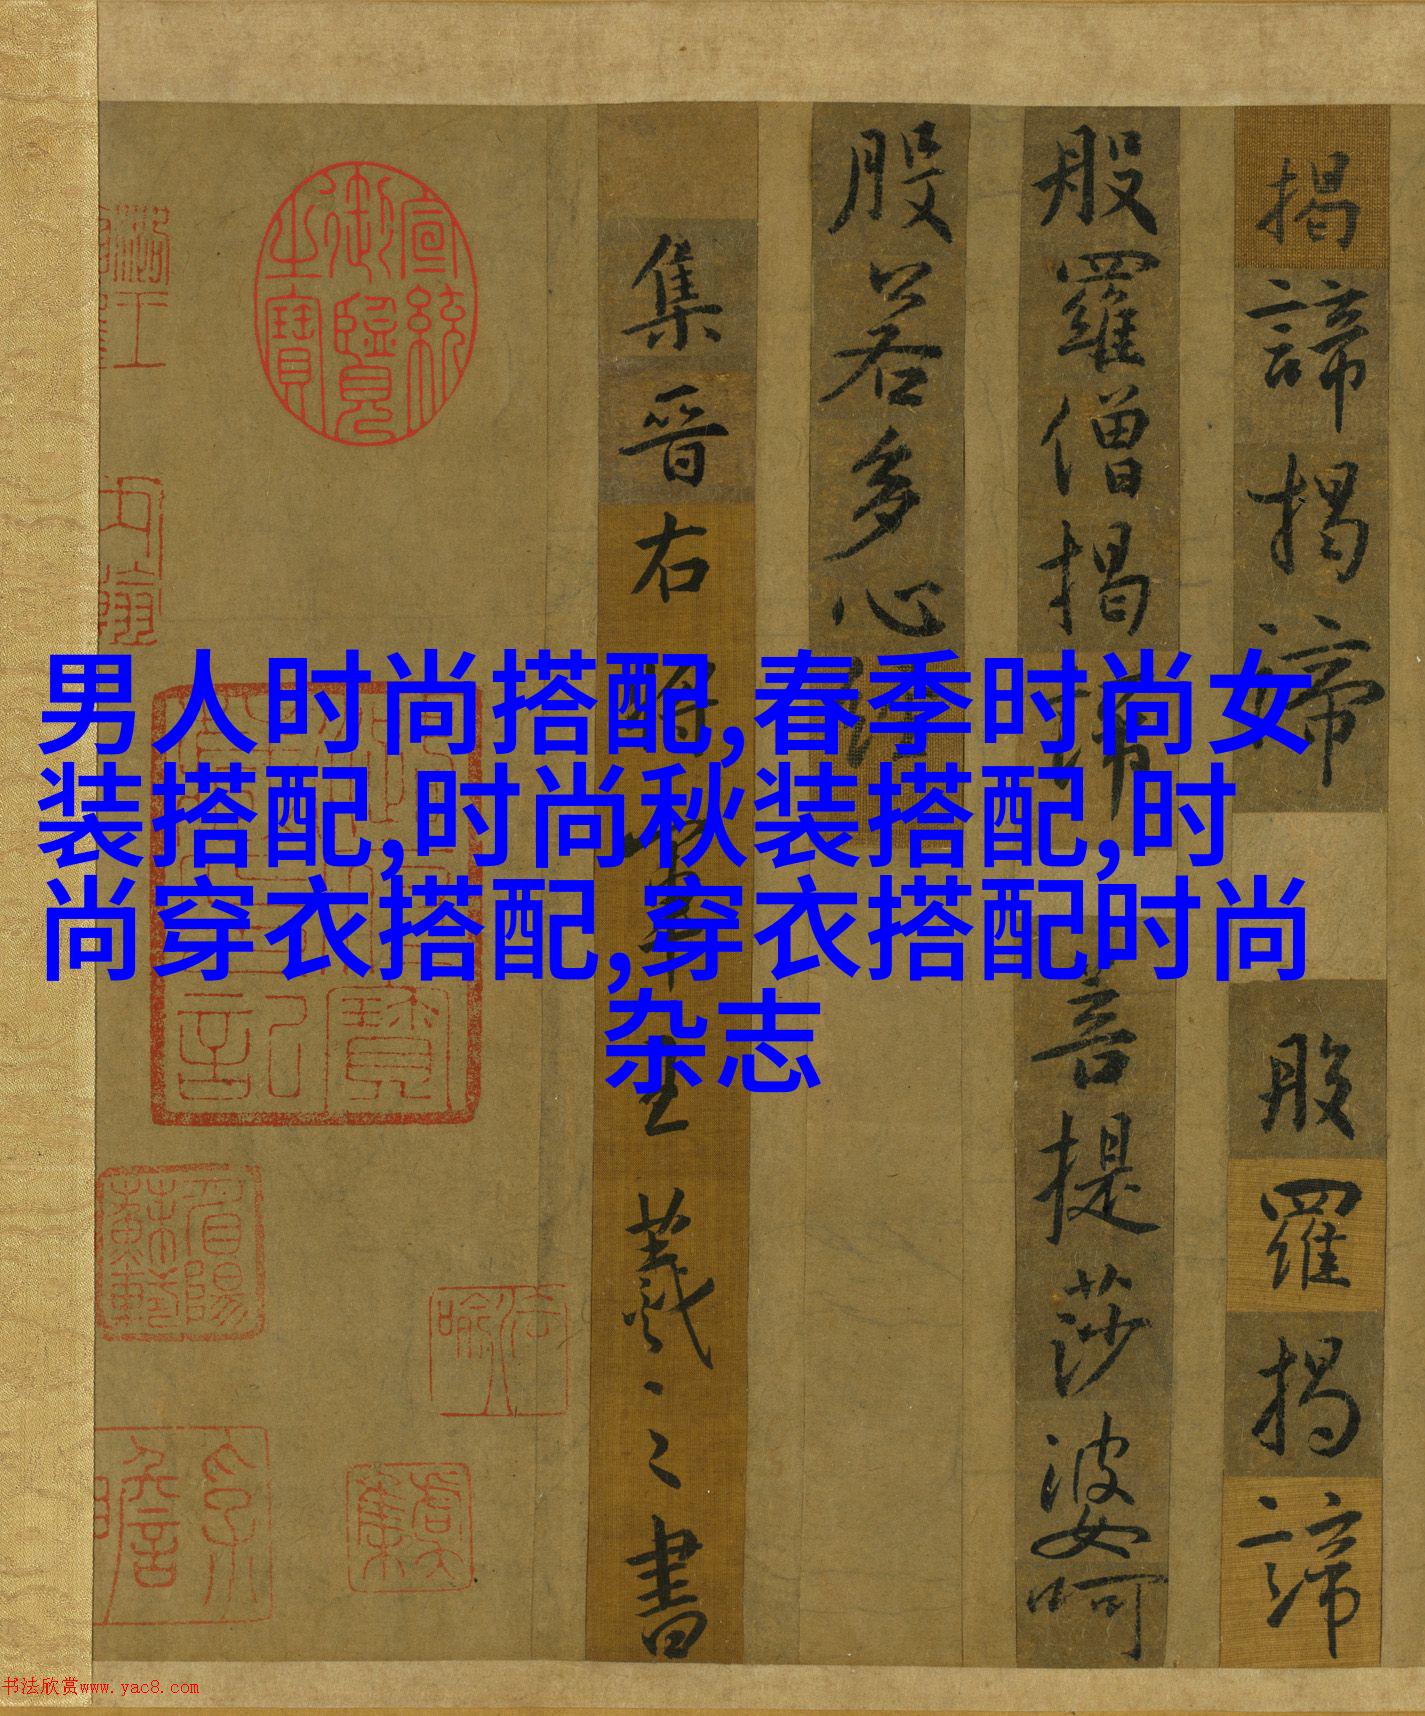 揭諦揭諦般羅揭諦
般羅僧揭諦菩提莎婆呵
般若多心經
集晉右將軍王羲之書
宣統御覽之寶
男人时尚搭配,春季时尚女
装搭配,时尚秋装搭配,时
尚穿衣搭配,穿衣搭配时尚
杂志
书法欣赏www.yac8.com